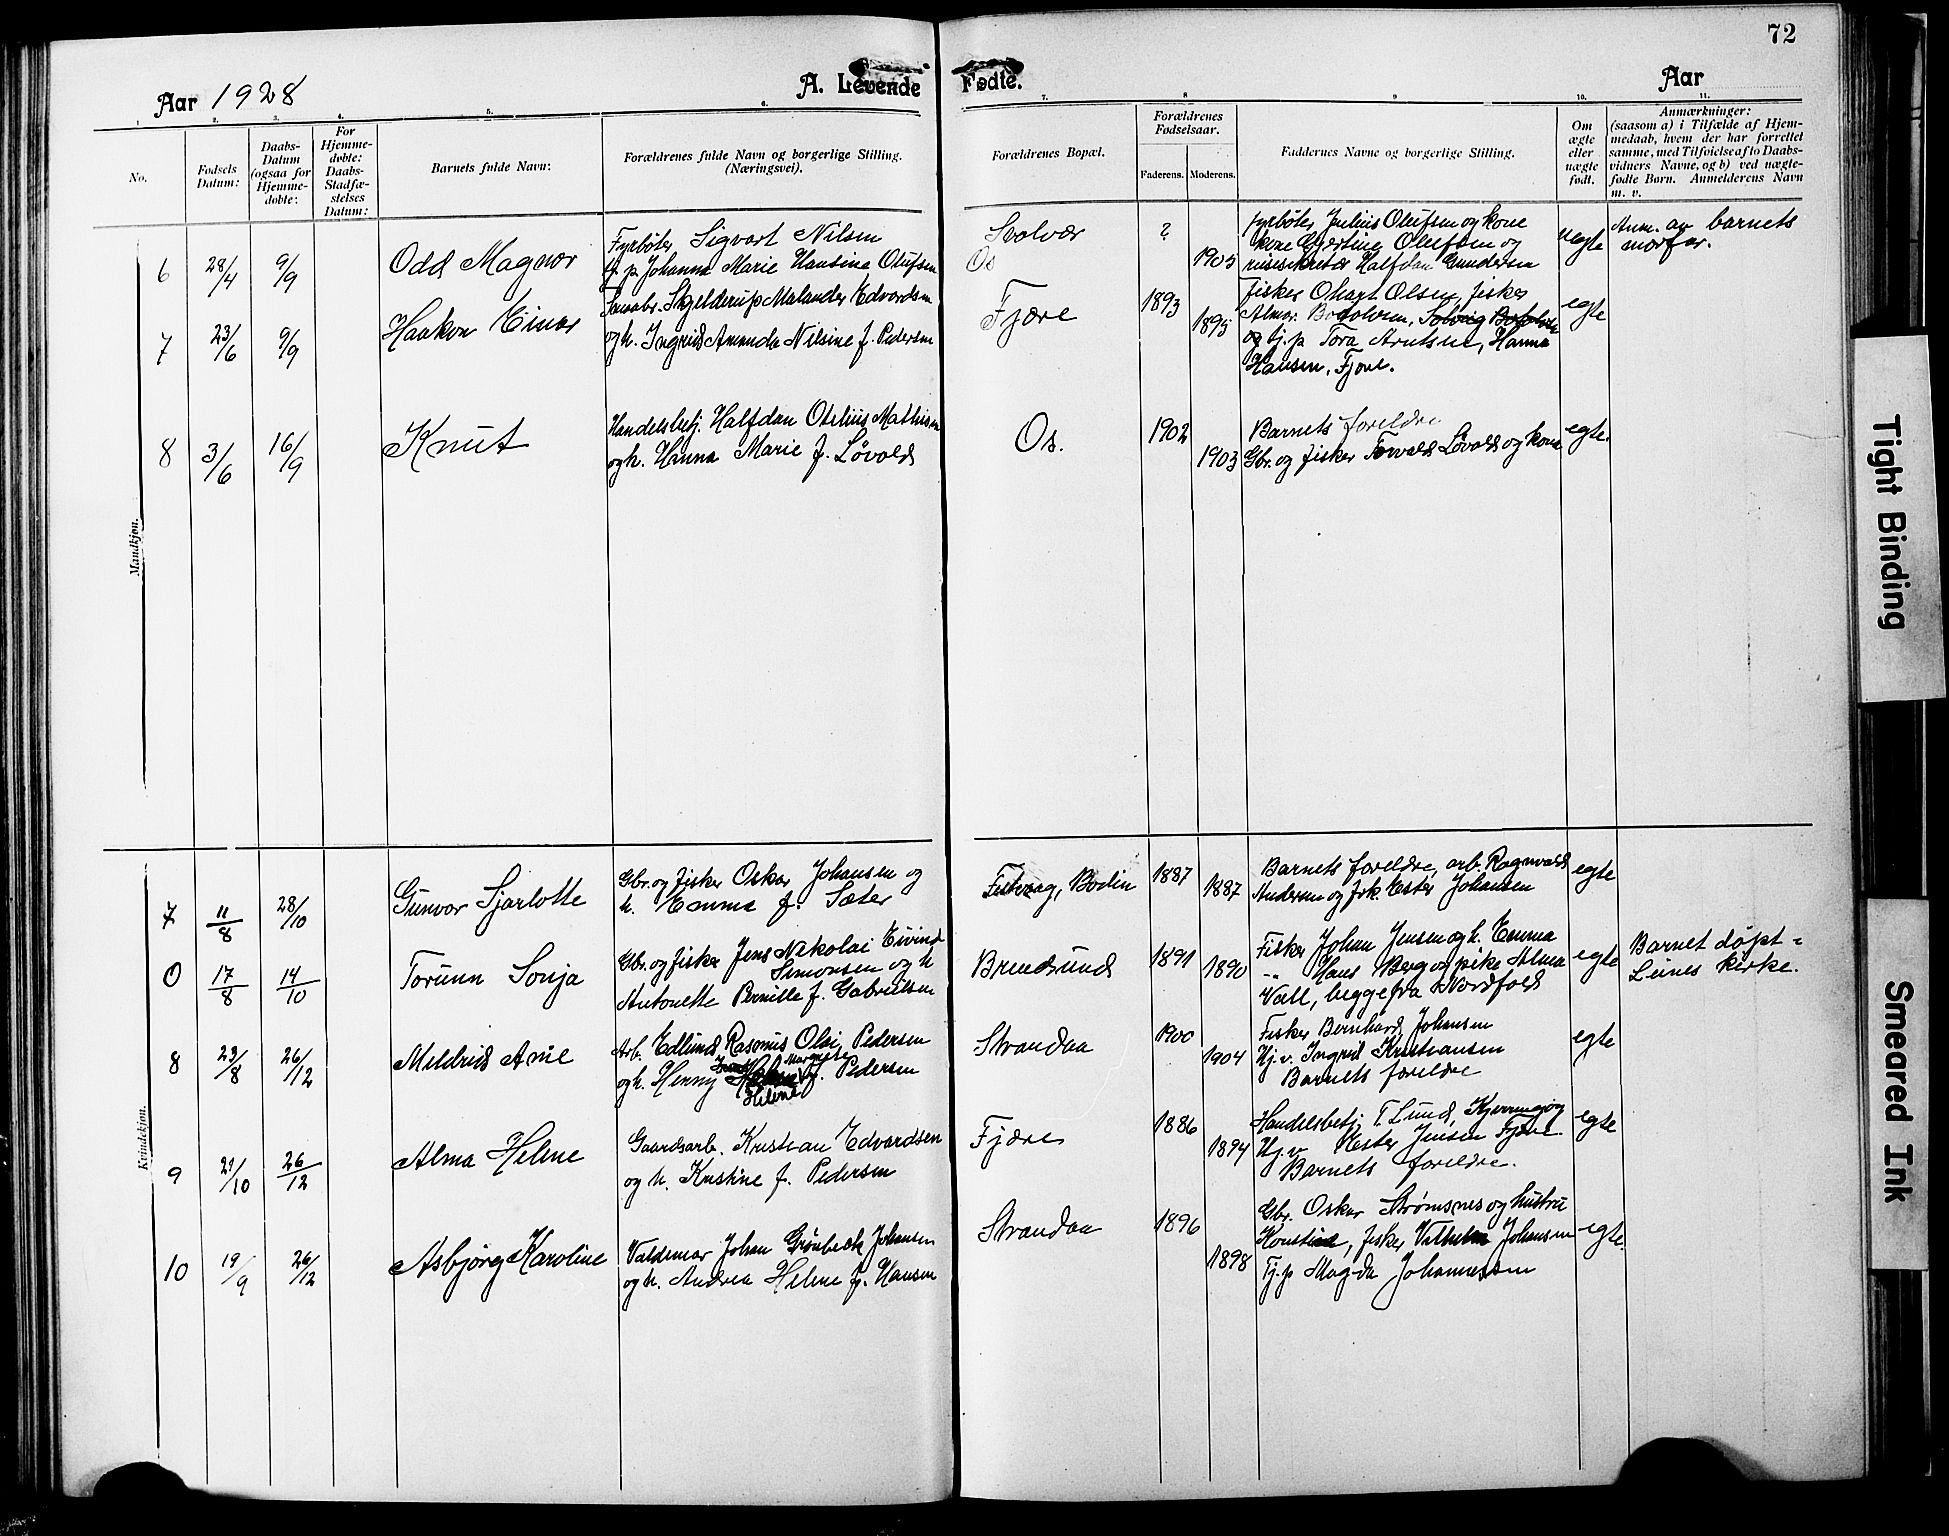 72
Aar 1928
A. Levende Fødte.
Aar
1. 2. 3. 4. 5. 6. 7. 8 9 10. 11.
No.
Fødsels Datum:
Daabs-Datum (ogsaa for Hjemme-døbte:
For Hjemme-døbte: Daabs-Stadfæ-stelses Datum:
Barnets fulde Navn:
Forældrenes fulde Navn og borgerlige Stilling.
(Næringsvei).
Forældrenes Bopæl.
Forældrenes Fødselsaar.
Faderens. Moderens.
Faddernes Navne og borgerlige Stilling.
Om ægte eller uægte født.
Anmærkninger:
(saasom a) i Tilfælde af Hjem-
medaab, hvem der har forrettet
samme, med Tilføielse af to Daabs-
vidners Navne, og b) ved uægte-
fødte Børn. Anmelderens Navn
m. v.
Mandkjøn.
6 28/4 9/9 Odd Magnor
Fyrbøter Sigvart Nilsen
tj. p. Johanna Marie Hansine Olufsen
Svolvær
Os
? 1905
fyrbøter Julius Olufsen og kone
kone Hjertine Olufsen og
Halfdan Gundersen
uegte
Anm. av barnets
morfar.
7 23/6 9/9 Haakon Einar
Skjelderup Malander Edvardsen
og h. Ingrid Amanda Nilsine f. Pedersen
Fjære
1893 1895
fisker Ohart Olsen, fisker
Almar Bodolvsen, Solveig
og tj. p Tora Arntsen, Hanna
Hansen, Fjære.
egte
8 3/6 16/9 Knut
Handelsbetj. Halfdan Otelius Mathisen
og h. Hanna Marie f. Løvold
Os.
1902 1903
Barnets foreldre
Gbr. og fisker Torvald Løvold og kone
egte.
Kvindekjøn.
7 11/8 28/10 Gunvor Sjarlotte
Gbr. og fisker Oskar Johansen og
h. Emma f. Sæter
Festvaag, Bodin
1887 1887
Barnets foreldre, arb. Ragnvald
Andersen og frk. Ester Johansen
egte
0 17/8 14/10 Torunn Sonja
Gbr. og fisker Jens Nikolai Eivind
Simonsen og h
Antonette Pernille f. Gabrielsen
Brendsund
1891 1890
Fisker Johan Jensen og h. Emma
-"- Hans Berg og pike Alma
Vall, begge fra Nordfold
egte
Barnet døpt =
Leines kirke.
8 23/8 26/12 Mildrid Anie
Arb. Edlund Rasmus Olai Pedersen
og h. Henny Margrete f. Pedersen
Helene
Strandaa
1900 1904
Fisker Bernhard Johansen
Hj. v. Ingrid Kristiansen
Barnets foreldre
egte
9 21/10 26/12 Alma Helene
Gaardsarb. Kristian Edvardsen
og h. Kristine f. Pedersen
Fjære
1886 1894
Handelsbetj. T. Lund, Kjerringøy
Hj. v. Ester Jensen Fjære
Barnets foreldre.
egte
10 19/9 26/12 Asbjørg Karoline
Valdemar Johan Grønbeck Johansen
og h. Andrea Helene f. Hansen
Strandaa
1896 1898
Gbr. Oskar Strømsnes og hustru
fisker Vilhelm Johansen
Tj. p Magda Johannessen
egte.
Tight Binding
Smeared Ink